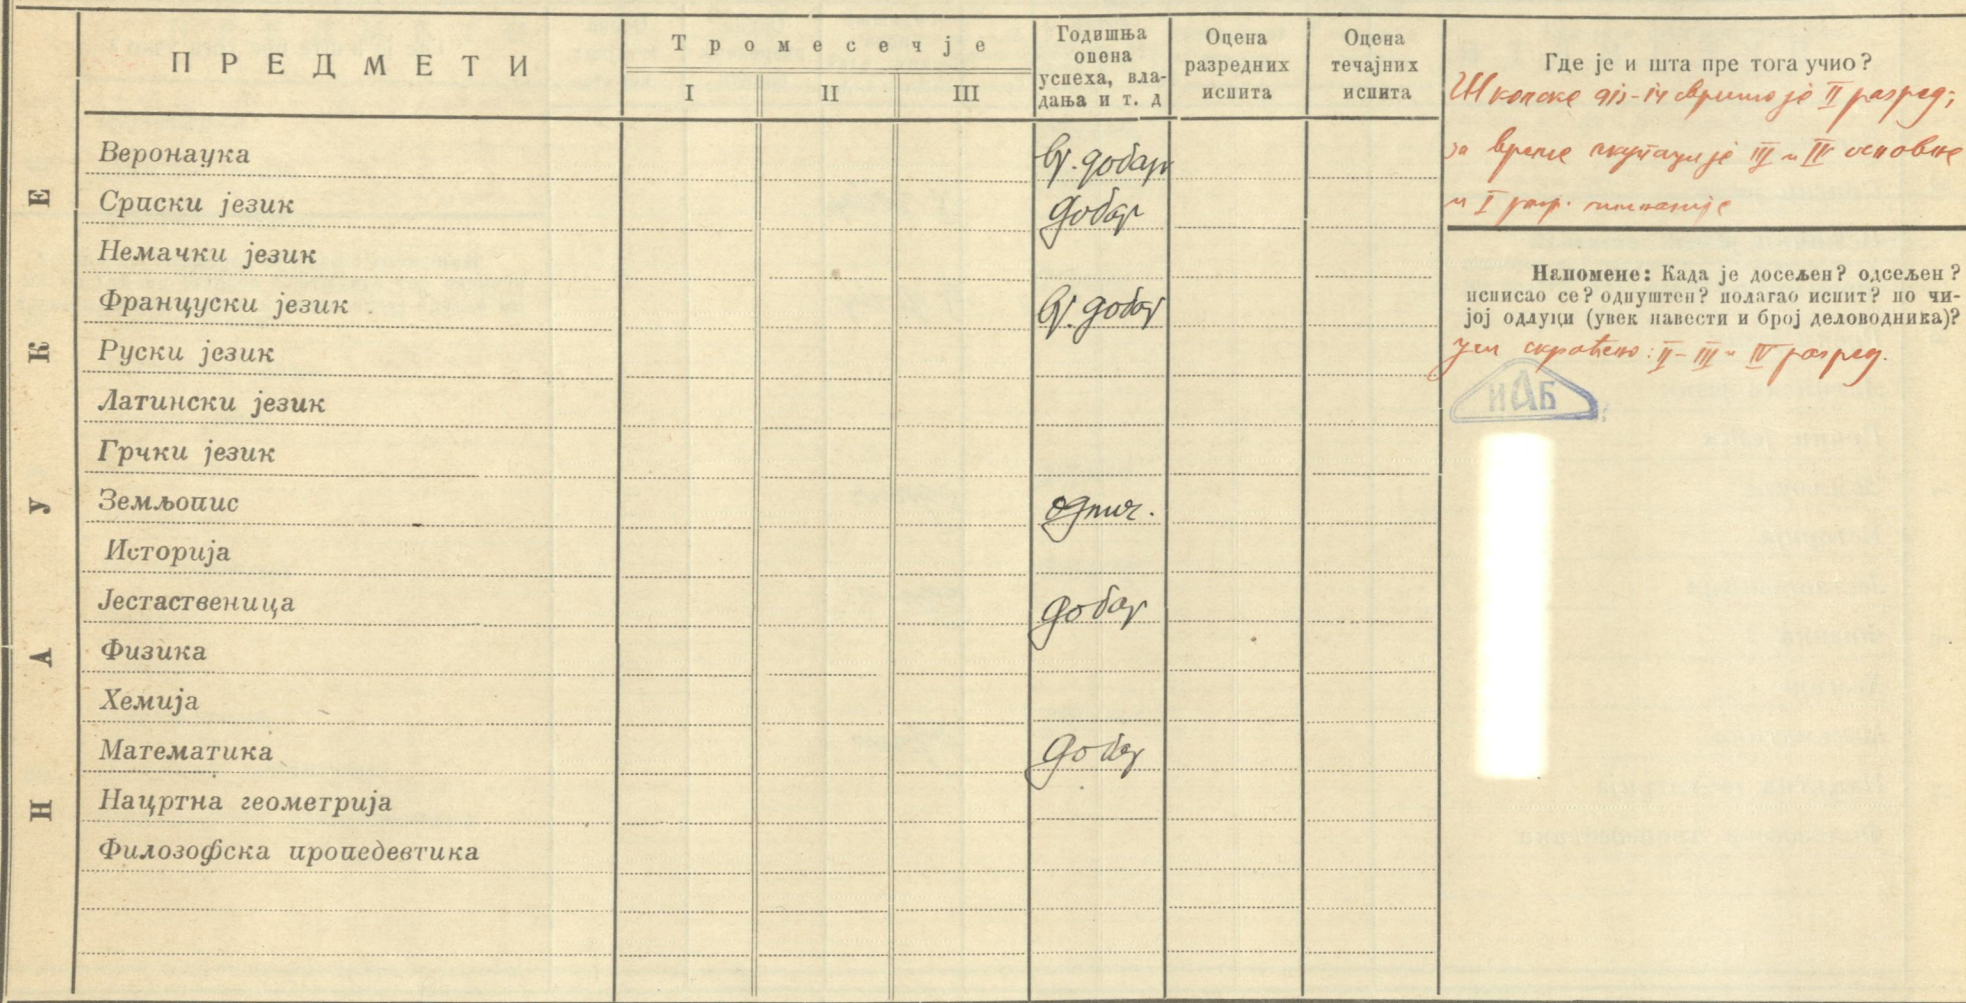 ПРЕДМЕТИ
Тромесечје
I
II
III
Годишња
оцена
успеха, вла-
дања и т. д
Оцена
разредних
испита
Оцена
течајних
испита
НАУКЕ
Веронаука вр. добар
Српски језик добар
Немачки језик
Француски језик вр. добар
Руски језик
Латински језик
Грчки језик
Земљопис одлич.
Историја
Јестаственица добар
Физика
Хемија
Математика добар
Нацртна геометрија
Филозофска пропедевтика
Где је и шта пре тога учио?
Школске 913-14 свршио је II разред;
за време окупације III и IV основне
и I разр. гимназије
Напомене: Када је досељен? одсељен?
исписао се? одпуштен? полагао испит? по чи-
јој одлуци (увек навести и број деловодника)?
учи скраћено: II-III и IV разред.
ИАБ